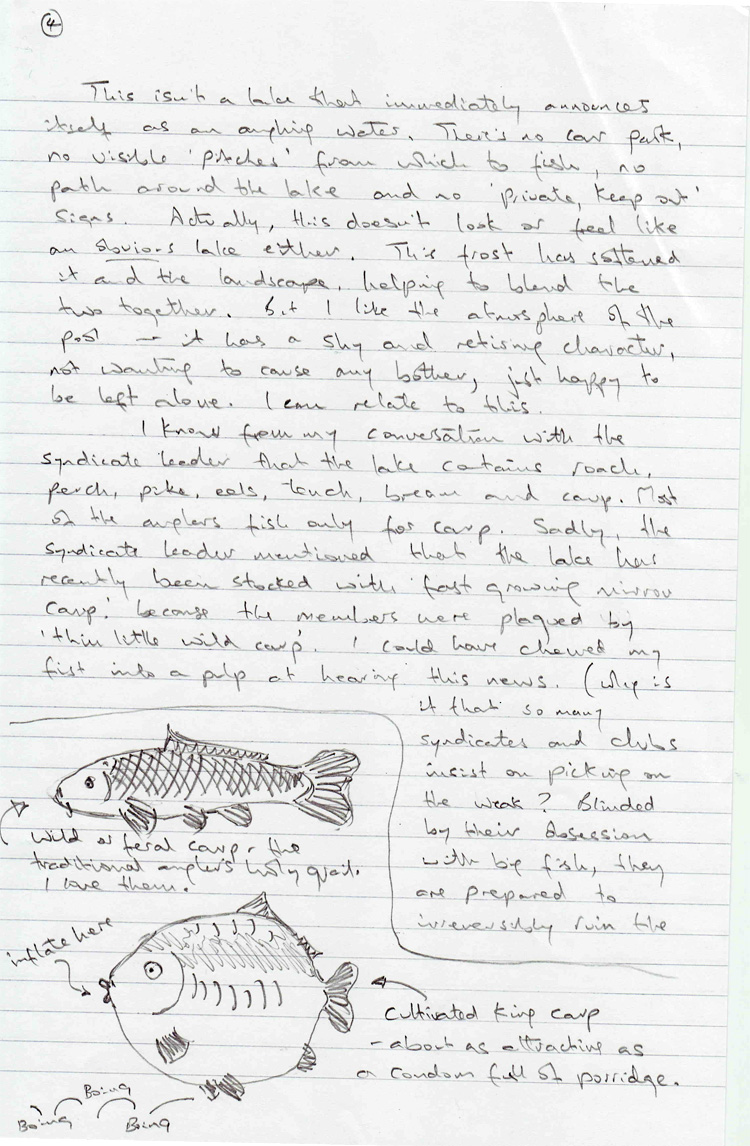 4
This isn't a lake that immediately announces
itself as an angling water. There's no car park,
no visible 'pitches' from which to fish, no
path around the lake and no 'private, keep out'
signs. Actually, this doesn't look or feel like
an obvious lake either. This frost has softened
it and the landscape, helping to blend the
two together. But I like the atmosphere of the
pool – it has a shy and retiring character,
not wanting to cause any bother, just happy to
be left alone. I can relate to this.
I know from my conversation with the
syndicate leader that the lake contains roach,
perch, pike, eels, tench, bream and carp. Most
of the anglers fish only for carp. Sadly, the
syndicate leader mentioned that the lake has
recently been stocked with 'fast growing mirror
carp' because the members were plagued by
'thin little wild carp'. I could have chewed my
fist into a pulp at hearing this news. (Why is
it that so many
syndicates and clubs
insist on picking on
the weak? Blinded
by their obsession
with big fish, they
are prepared to
irreversibly ruin the
Wild or feral carp - the
traditional angler's holy grail.
I love them.
inflate here
Cultivated King carp
- about as attractive as
a condom full of porridge.
Boing
Boing
Boing